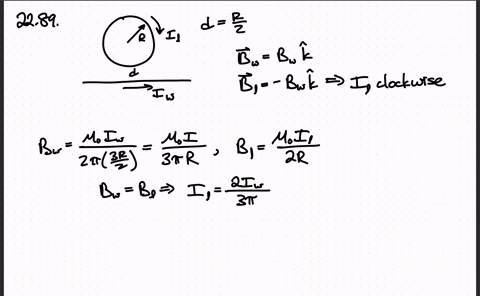 22.89.
R I₁ d = R/2
d
I_w
B⃗_w = B_w k̂
B⃗₁ = -B_w k̂ ⇒ I₁ clockwise
B_w = μ₀I_w / 2π(3R/2) = μ₀I / 3πR , B₁ = μ₀I₁ / 2R
B_w = B₁ ⇒ I₁ = 2I_w / 3π